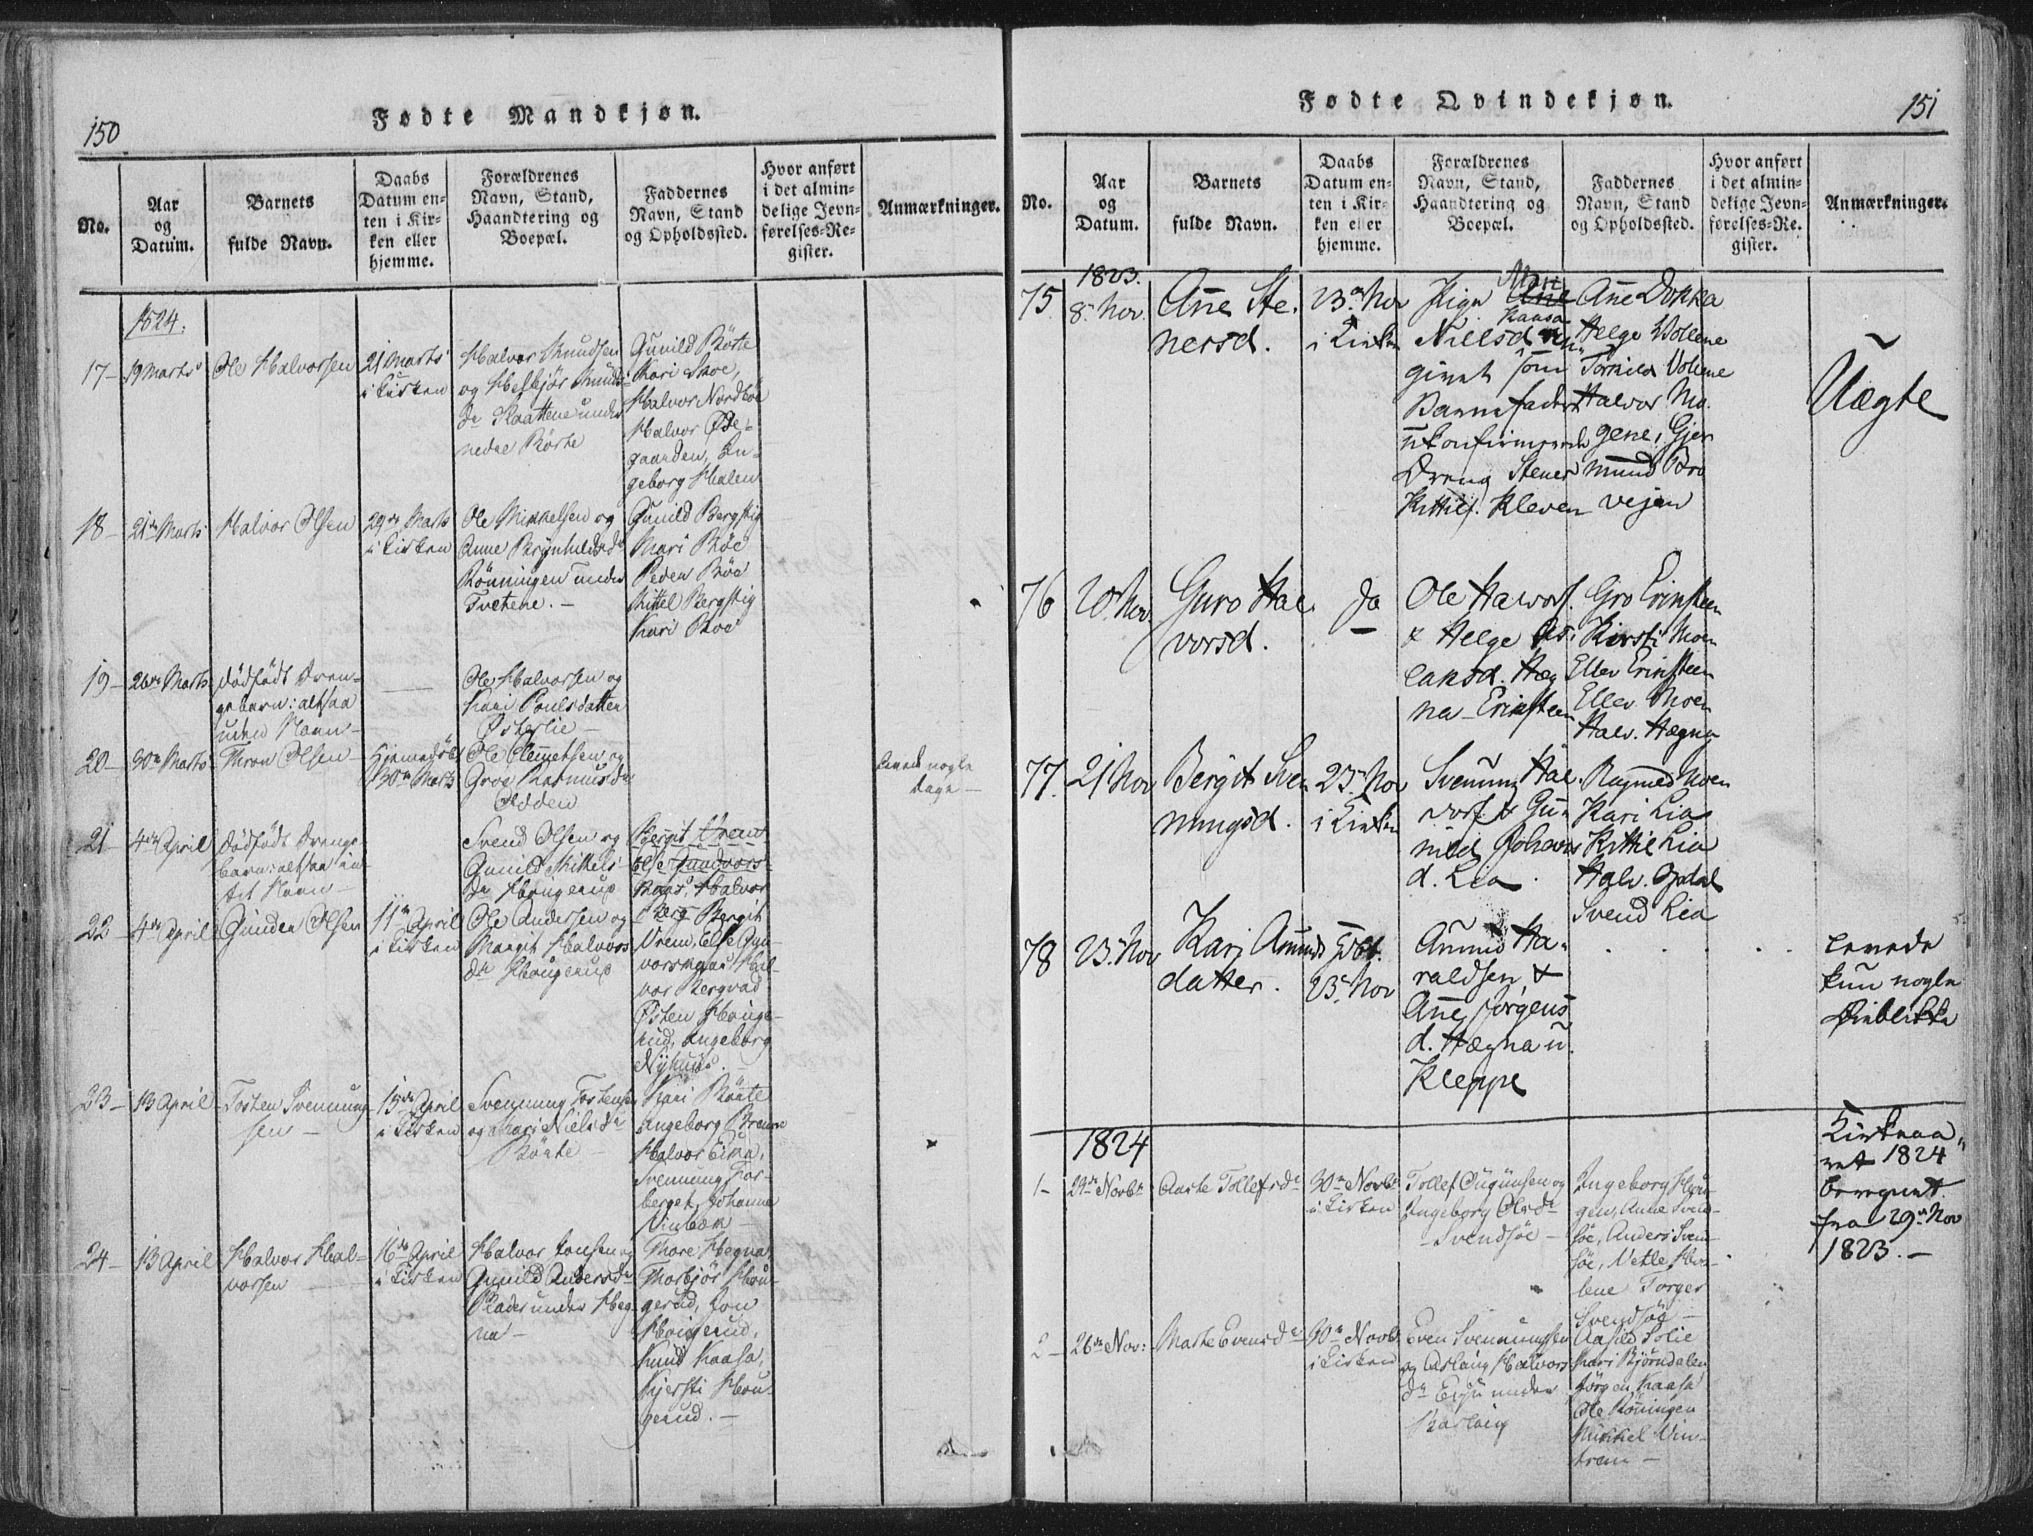 150
Fødte Mandkjøn.
No.
Aar og Datum.
Barnets fulde Navn.
Daabs Datum enten i Kirken eller hjemme.
Forældrenes Navn, Stand, Haandtering og Boepæl.
Faddernes Navn, Stand og Opholdssted.
Hvor anført i det almindelige Jevnførelses-Register.
Anmærkninger.
1824.
17 – 19 Marts
Ole Halvorsen
21 Marts
i Kirken
Halvor Knudsen
og
nedre Börte
Gunild Börte
Kari Moe,
Halvor Nordböe
Halvor Öde-
gaarden, In-
geborg Halen
18 – 21de Marts
Halvor Olsen
29de Marts
i Kirken
Ole Mikkelsen og
Anne Brynhildsdr
Rönningen under
Tvetene. –
Gunild Bergstig
Mari Böe
Peder Böe
Kittel Bergstig
Kari Böe
19 – 26de Marts
dödfödt Dren-
gebarn: altsaa
uden Navn –
Ole Halvorsen og
Kari Poulsdatter
Österlie –
20 – 30te Marts
Thron Olsen –
Hjemmedöbt
30te Marts
Ole Clemetsen og
Groe Rasmusdr
Odden
levede nogle
dage –
21 – 4de April
dödfödt Drenge-
barn: altsaa in-
tet Navn –
Svend Olsen og
Gunild Kittels-
dr Haugerud
Bergit Vrem
Else Gundvors-
Halvor
22 – 4de April
Gunder Olsen
11te April
i Kirken
Ole Andersen og
Margit Halvors
dr Haugerud
Berg Bergit
Vrem, Else Gun-
Hal-
vor Bergvad
Östen Hauge-
rud, Ingeborg
Nyhuus. –
23 – 13 April
Tosten Svennung-
sen –
15de April
i Kirken
Svennung Tostensen
og Kari Nielsdr
Börte –
Kari Börte
Ingeborg
Halvor Eika,
Svennung Tor-
berget, Johanne
24 – 13 April
Halvor Hal-
vorsen –
16de April
i Kirken
Halvor Jonsen og
Gunild Andersdr
Pladsen under Heg-
na –
Thore Hegna
Thorbjör Hou-
gerud, Jon
Hougerud,
Knud Kaasa,
Kjersti Hou-
gerud. –
151
Fødte Qvindekjøn.
No.
Aar og Datum.
Barnets fulde Navn.
Daabs Datum enten i Kirken eller hjemme.
Forældrenes Navn, Stand, Haandtering og Boepæl.
Faddernes Navn, Stand og Opholdssted.
Hvor anført i det almindelige Jevnførelses-Register.
Anmærkninger.
1823.
75. 8. Nov.
Anne Ste-
nersd.
23. Nov
i Kirken
Pige Mari Ane
Nielsd. Kaasa An-
givet som
Barnefader
ukonfirmerede
Dreng Stener
Kittils. Kleven
Anne Dokka
Helge Vollene
Tornild Vollene
Halvor Mo-
gene, Gjer-
mund Bro
vejen
Uægte
76 20. Nov.
Guro Hal-
vorsd.
do
Ole Halvors.
& Helge As-
laksd. Hæg
na – Eriksteen
Gro Eriksteen
Kirsti Moen
Ellev Eriksteen
Ellev Moen
Halv. Hægna
77. 21 Nov
Bergit Sven
nungsd.
23. Nov
i Kirken
Svenung Hal-
vors. & Gu-
nild Johans
d. Lia.
Ragnild Moen
Kari Lia
Kittil Lia
Halv. Opdal
Svend Lia
78 23. Nov
Kari Amunds
datter.
23. Nov
Amund Ha-
raldsen &
Anne Jörgens
d. Hægna u.
Kleppe
levede
kun nogle
Öieblikke
1824
Kirkeaa-
ret 1824
beregnet
fra 29. Nov
1823. –
1 – 24de Novbr
Aaste Tollefsdr
30te Novbr
i Kirken
Tollef Gugunsen og
Ingeborg Olsdr
– Svendsöe –
Ingeborg
gen, Anne Svend-
söe, Anders Svend-
söe, Vetle
Torger
Svendsöe –
2 – 26de Nov:
Marte Evensdr
30te Novb
i Kirken
Even Svennungsen
og Aslaug Halvors
dr under
Aaslo Solie
Kari Björndalen
Jörgen Kaasa
Ole Rönningen
Mikkel Vin-
trem –